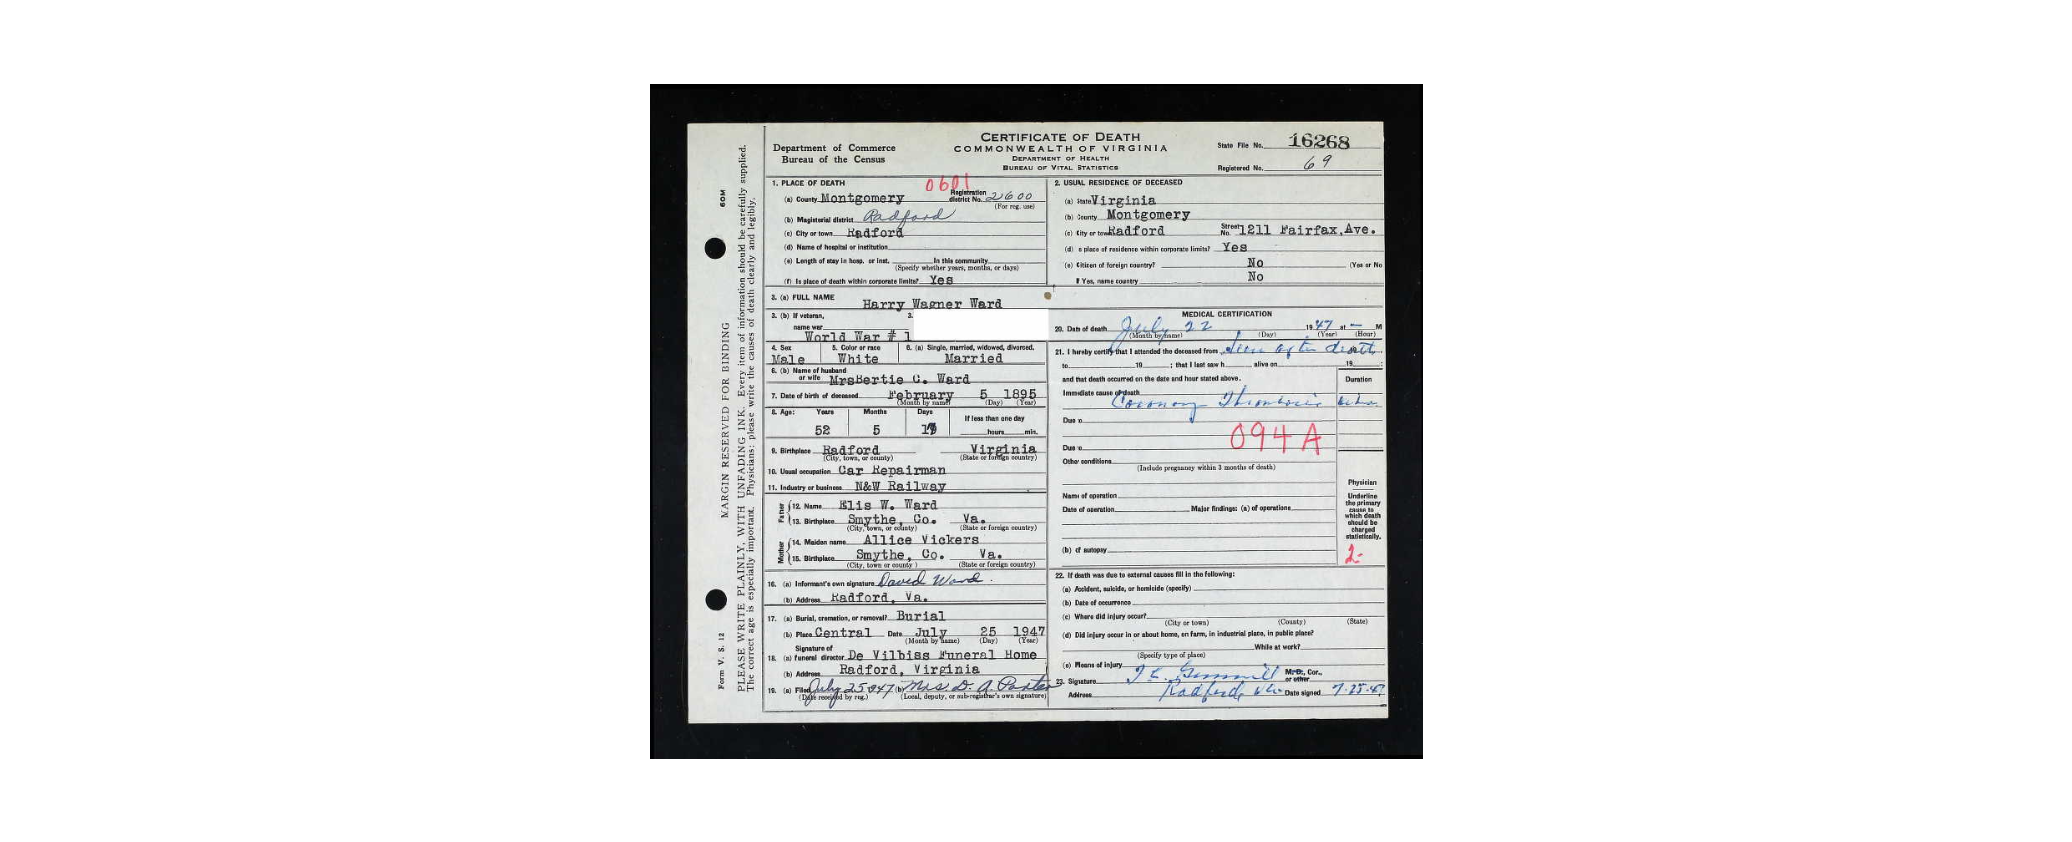 CERTIFICATE OF DEATH
COMMONWEALTH OF VIRGINIA
DEPARTMENT OF HEALTH
BUREAU OF VITAL STATISTICS
Department of Commerce
Bureau of the Census
State File No. 16268
Registered No. 69
MARGIN RESERVED FOR BINDING
PLEASE WRITE PLAINLY, WITH UNFADING INK. Every item of information should be carefully supplied.
The correct age is especially important. Physicians: please write the causes of death clearly and legibly.
Form V. S. 12
60M
1. PLACE OF DEATH
0601
(a) County Montgomery Registration district No. 2600
(For reg. use)
(b) Magisterial district Radford
(c) City or town Radford
(d) Name of hospital or institution
(e) Length of stay in hosp. or inst. In this community
(Specify whether years, months, or days)
(f) Is place of death within corporate limits? Yes
2. USUAL RESIDENCE OF DECEASED
(a) State Virginia
(b) County Montgomery
(c) City or town Radford Street No. 1211 Fairfax, Ave.
(d) Is place of residence within corporate limits? Yes
(e) Citizen of foreign country? No (Yes or No
If Yes, name country No
3. (a) FULL NAME Harry Wagner Ward
3. (b) If veteran,
name war World War # 1
3.
4. Sex Male
5. Color or race White
6. (a) Single, married, widowed, divorced. Married
6. (b) Name of husband or wife MrsBertie C. Ward
7. Date of birth of deceased February 5 1895
(Month by name) (Day) (Year)
8. Age: Years Months Days If less than one day
52 5 17 hours min.
9. Birthplace Radford Virginia
(City, town, or county) (State or foreign country)
10. Usual occupation Car Repairman
11. Industry or business N&W Railway
Father
12. Name Elis W. Ward
13. Birthplace Smythe, Co. Va.
(City, town, or county) (State or foreign country)
Mother
14. Maiden name Allice Vickers
15. Birthplace Smythe, Co. Va.
(City, town or county) (State or foreign country)
16. (a) Informant's own signature David Ward.
(b) Address Radford, Va.
17. (a) Burial, cremation, or removal? Burial
(b) Place Central Date July 25 1947
(Month by name) (Day) (Year)
Signature of
18. (a) funeral director De Vilbiss Funeral Home
(b) Address Radford, Virginia
19. (a) Filed July 25 947 (b) Mrs. D. A. Porter
(Date received by reg.) (Local, deputy, or sub-registrar's own signature)
MEDICAL CERTIFICATION
20. Date of death July 22 1947 at — M
(Month by name) (Day) (Year) (Hour)
21. I hereby certify that I attended the deceased from Seen after death
to 19 ; that I last saw h alive on 19 ;
and that death occurred on the date and hour stated above.
Duration
Immediate cause of death
Coronary Thrombosis
Due to
094A
Due to
Other conditions
(Include pregnancy within 3 months of death)
Name of operation
Date of operation Major findings: (a) of operations
(b) of autopsy
Physician
Underline
the primary
cause to
which death
should be
charged
statistically.
2-
22. If death was due to external causes fill in the following:
(a) Accident, suicide, or homicide (specify)
(b) Date of occurrence
(c) Where did injury occur?
(City or town) (County) (State)
(d) Did injury occur in or about home, on farm, in industrial place, in public place?
While at work?
(Specify type of place)
(e) Means of injury
23. Signature M.D., Cor., or other
Address Radford Va. Date signed 7-25-47